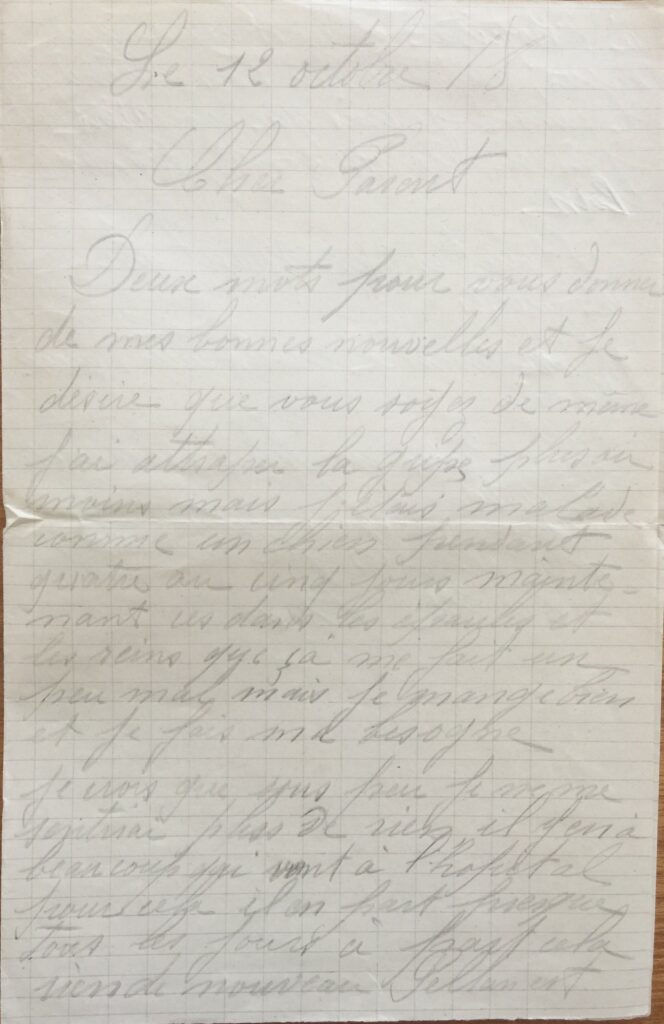 Le 12 octobre 18
Cher Parent
Deux mots pour vous donner
de mes bonnes nouvelles et je
désire que vous soyez de même
j'ai attraper la gripe plus ou
moins mais j'étais malade
comme un chien pendant
quatre ou cinq jours mainte-
nant ces dans les épaules et
les reins que çà me fait un
peu mal mais je mange bien
et je fais ma besogne
je crois que sous peu je ne me
sentirai plus de rien il y en à
beaucoup qui vont à l'hopital
pour cela il en part presque
tous les jours à part cela
rien de nouveau